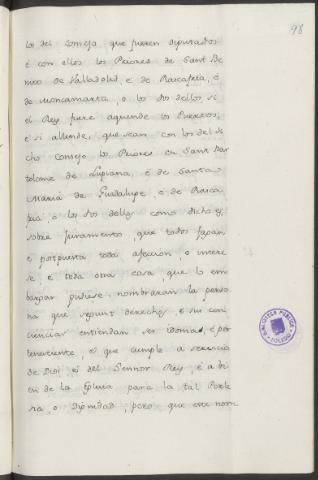 98
los del Consejo, que fueren diputados
é con ellos los Priores de Sant Be
nito de Valladolid, e de Rascafria, é
de Moncamarta, o los dos dellos, si
el Rey fuere aquende los Puertos,
é si allende, que sean con los del di
cho Consejo los Priores en Sant Bar
tolome de Lupiana, é de Santa
Maria de Guadalupe, é de Rasca
fria, o los dos dellos como dicho es,
sobre juramento, que todos fagan
é pospuesta toda afeccion, o intere
se, é toda otra cosa, que lo em
bargar pudiese, nombraran la perso
na que segunt derecho, é sus con
ciencias entiendan ser idonea, é per
teneciente, é que cumple a servicio
de Dios, é del Sennor Rey, é a bi
en de la Eglesia para la tal Perla
sia, o Dignidad, pero que este nom
BIBLIOTECA PUBLICA
TOLEDO